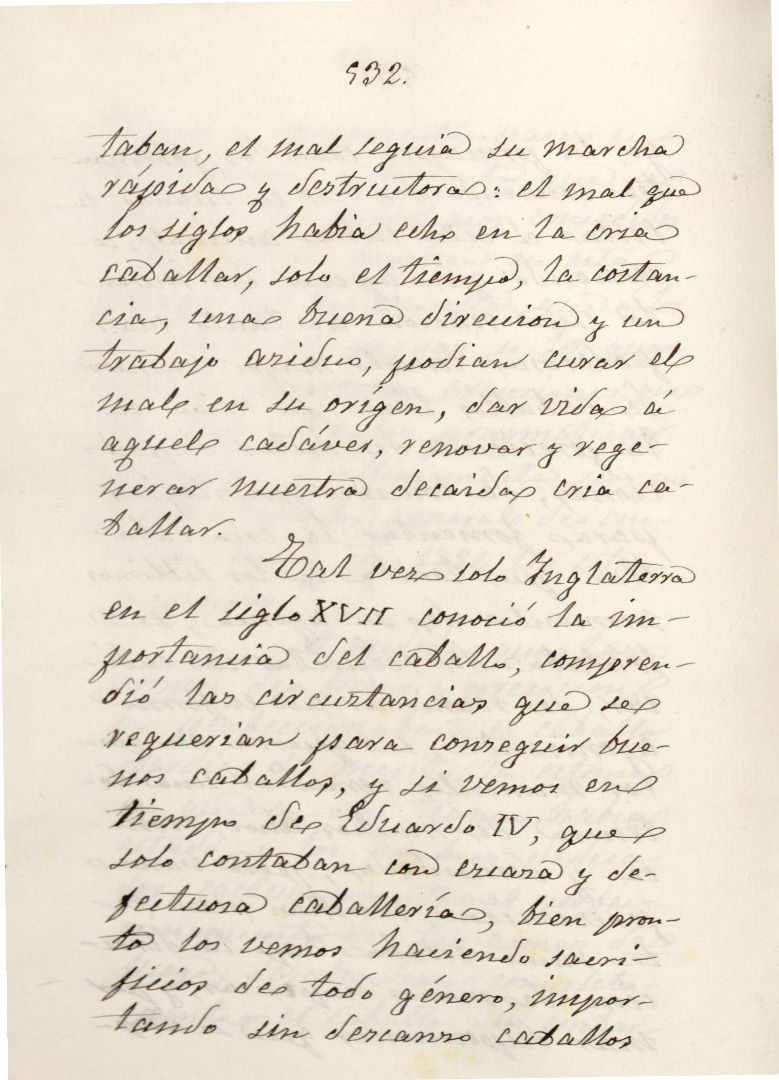 532.
taban, el mal seguia su marcha
rápida y destructora: el mal que
los siglos habia echo en la cria
caballar, solo el tiempo, la costan-
cia, una buena direccion y un
trabajo asiduo, podian curar el
mal en su orígen, dar vida á
aquel cadáver, renovar y rege-
nerar nuestra decaida cria ca-
ballar.
Tal vez solo Inglaterra
en el siglo XVII conoció la im-
portancia del caballo, compren-
dió las circustancias que se
requerian para conseguir bue-
nos caballos, y si vemos en
tiempo de Eduardo IV, que
solo contaban con escasa y de-
fectuosa caballería, bien pron-
to los vemos haciendo sacri-
ficios de todo género, impor-
tando sin descanso caballos